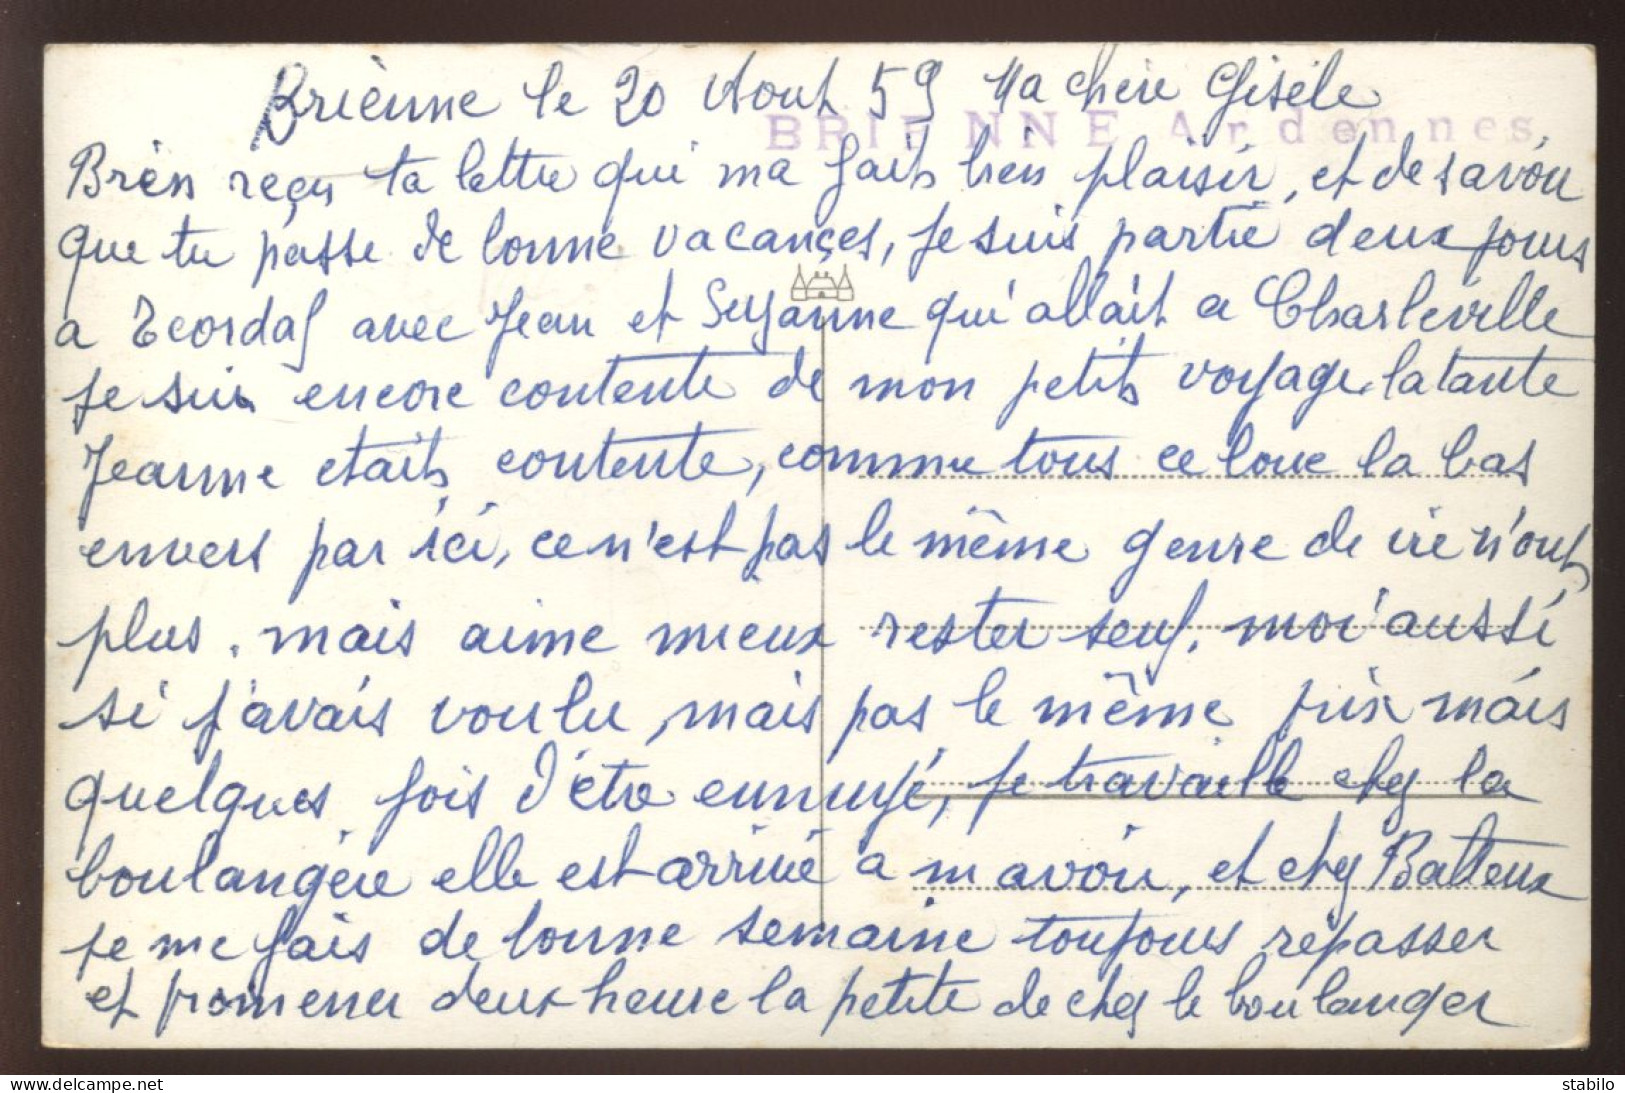 Brienne le 20 Aout 59 Ma chère Gisèle
BRIENNE Ardennes
Bien reçu ta lettre qui ma fait bien plaisir, et de savoir
que tu passe de bonne vacances, je suis partie deux jours
a avec Jean et Suzanne qu'allait a Charleville
je suis encore contente de mon petit voyage. la tante
Jeanne etait contente, comme tous ce loue la bas
envers par ici, ce n'est pas le même genre de vie n'ont
plus. mais aime mieux rester seul, moi aussi
si j'avais voulu, mais pas le même prix mais
quelques fois d'être ennuyé, je travaille chez la
boulangère elle est arrivé a m avoir, et chez Batteux
je me fais de bonne semaine toujours repasser
et promener deux heure la petite de chez le boulanger
stabilo